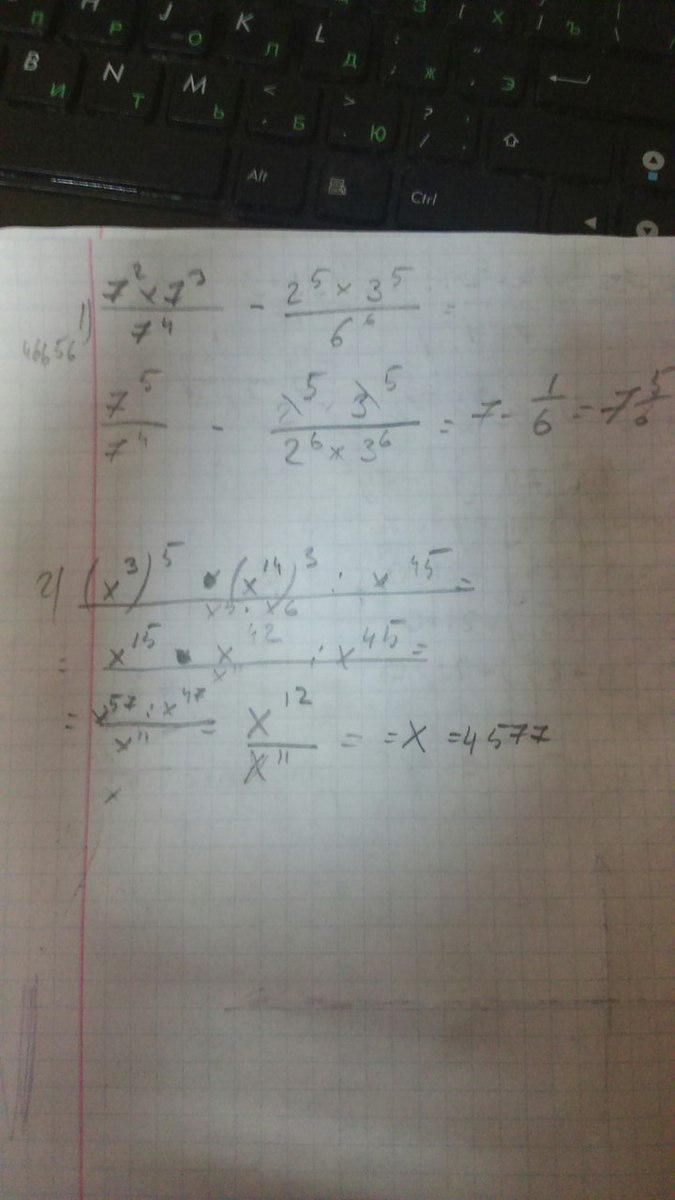 П Н Р J О K Л L Д Ж Э З Х Ъ
В И N Т M Ь < Б > . Ю ? /
Alt Ctrl
1) (7² × 7³)/7⁴ - (2⁵ × 3⁵)/6⁶ =
46656
7⁵/7⁴ - (2⁵ 3⁵)/(2⁶ × 3⁶) = 7 - 1/6 = 7 5/6
2) ((x³)⁵ • (x¹⁴)³ : x⁴⁵)/(x⁵ · x⁶) =
= (x¹⁵ • x⁴² : x⁴⁵)/x¹¹ =
= (x⁵⁷ : x⁴⁷)/x¹¹ = x¹²/x¹¹ = = x = 4577
x